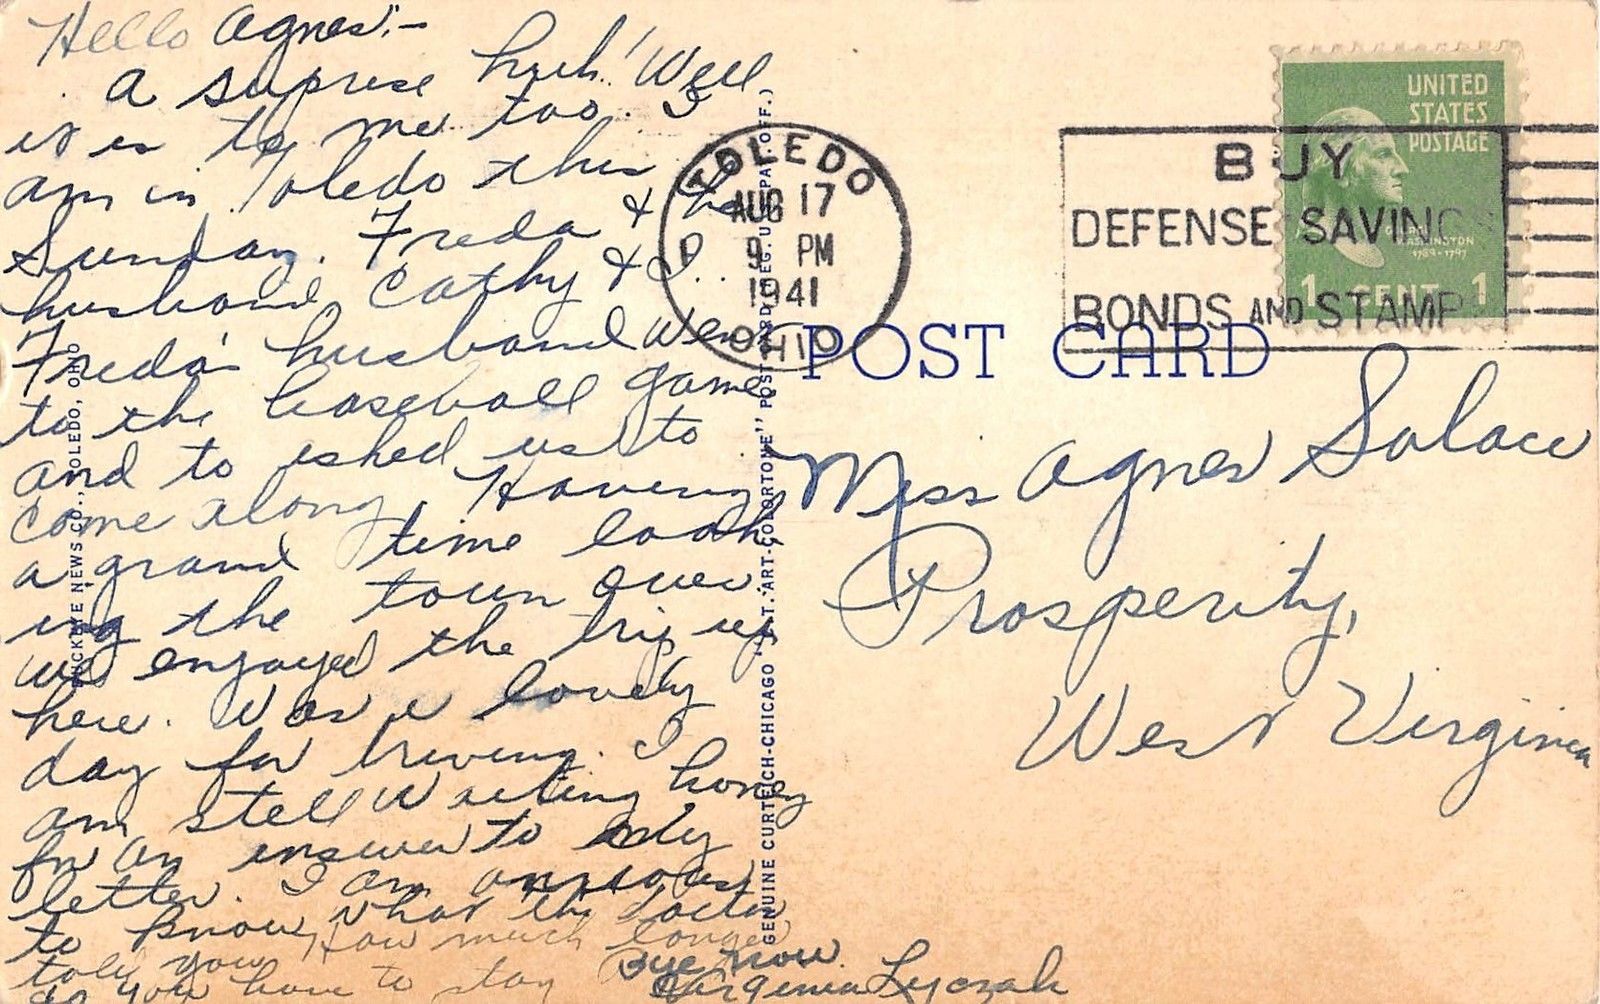 Hello Agnes:-
A suprise huh! Well
it is to me too. I
am in Toledo this
Sunday. Freda & he
husband Cathy & I..
Freda's husband wen
to the baseball game
and to asked us to
come along. Having
a grand time look
ing the town over.
we enjoyed the trip up
here. Was a lovely
day for driving. I
am still waiting honey
for an answer to my
letter. I am anxious
to know what the doctor
told you. How much longer
do you have to stay
Bye now.
Virginia Lyczak
BUCKEYE NEWS CO., TOLEDO, OHIO
GENUINE CURTEICH-CHICAGO "C.T. ART-COLORTONE" POST CARD (REG. U.S. PAT. OFF.)
TOLEDO
AUG 17
9 PM
1941
OHIO
BUY
DEFENSE SAVINGS
BONDS AND STAMPS
UNITED
STATES
POSTAGE
WASHINGTON
1789-1797
1 CENT 1
POST CARD
Miss Agnes Solace
Prosperity,
West Virginia